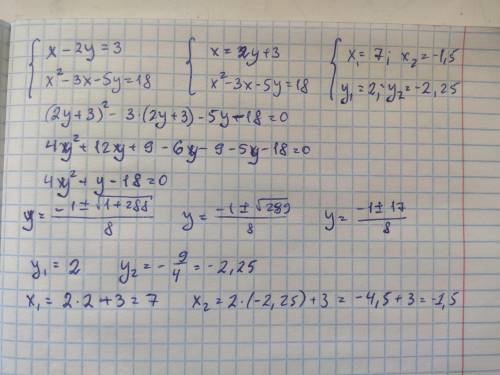 x - 2y = 3    x = 2y + 3    x₁ = 7; x₂ = -1,5
x² - 3x - 5y = 18    x² - 3x - 5y = 18    y₁ = 2; y₂ = -2,25
(2y+3)² - 3·(2y+3) - 5y - 18 = 0
4y² + 12y + 9 - 6y - 9 - 5y - 18 = 0
4y² + y - 18 = 0
y = (-1 ± √(1+288))/8    y = (-1 ± √289)/8    y = (-1 ± 17)/8
y₁ = 2    y₂ = -9/4 = -2,25
x₁ = 2·2 + 3 = 7    x₂ = 2·(-2,25) + 3 = -4,5 + 3 = -1,5